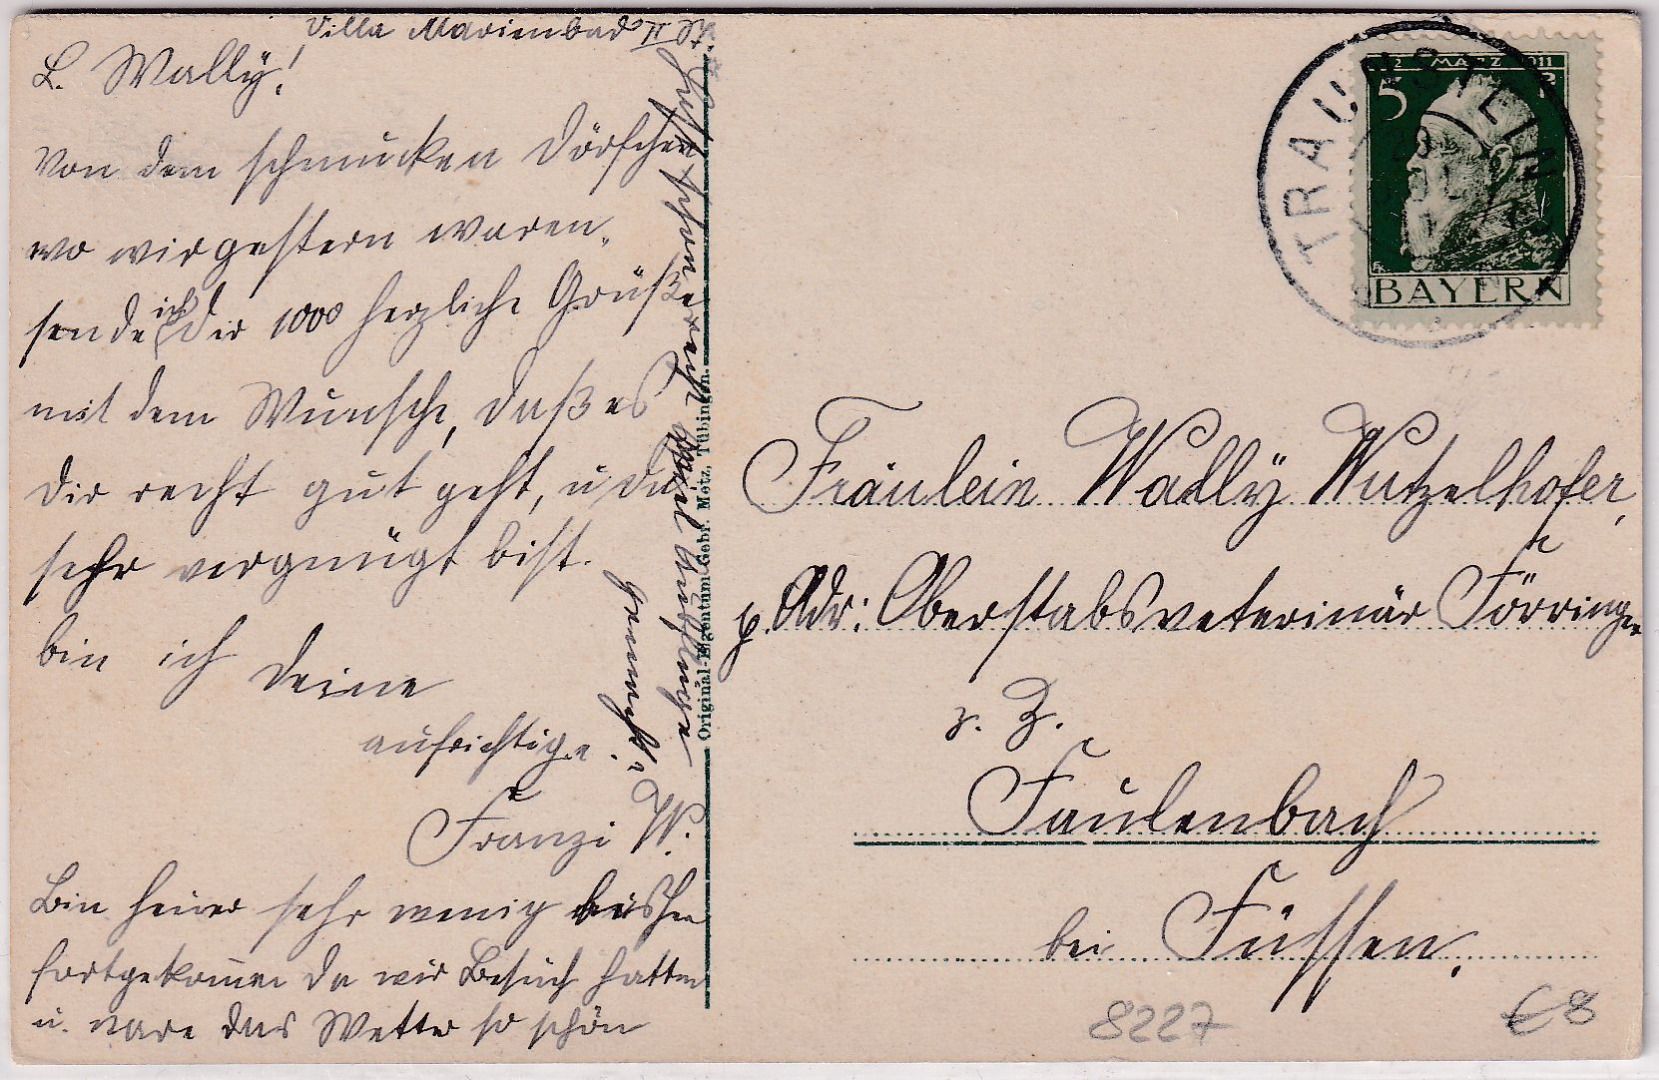 Villa Marienbad II St.
L. Wally!
Von dem schmucken Dörfchen
wo wir gestern waren,
sende ich Dir 1000 herzliche Grüße
mit dem Wunsche, daß es
Dir recht gut geht, u. Du
sehr vergnügt bist.
bin ich Deine
aufrichtige
Franzi W.
Bin heuer sehr wenig bisher
fortgekommen da wir Besuch hatten
u. wäre das Wetter so schön
Hast schon recht viel Ausflüge
gemacht?
Original-Eigentum Gebr. Metz, Tübingen.
TRAUNSTEIN
12 MÄRZ 1911
5
BAYERN
Fräulein Wally Wutzelhofer,
p. Adr: Oberstabsveterinär Förringer
z. Z.
Faulenbach
bei Füssen.
8227
€8